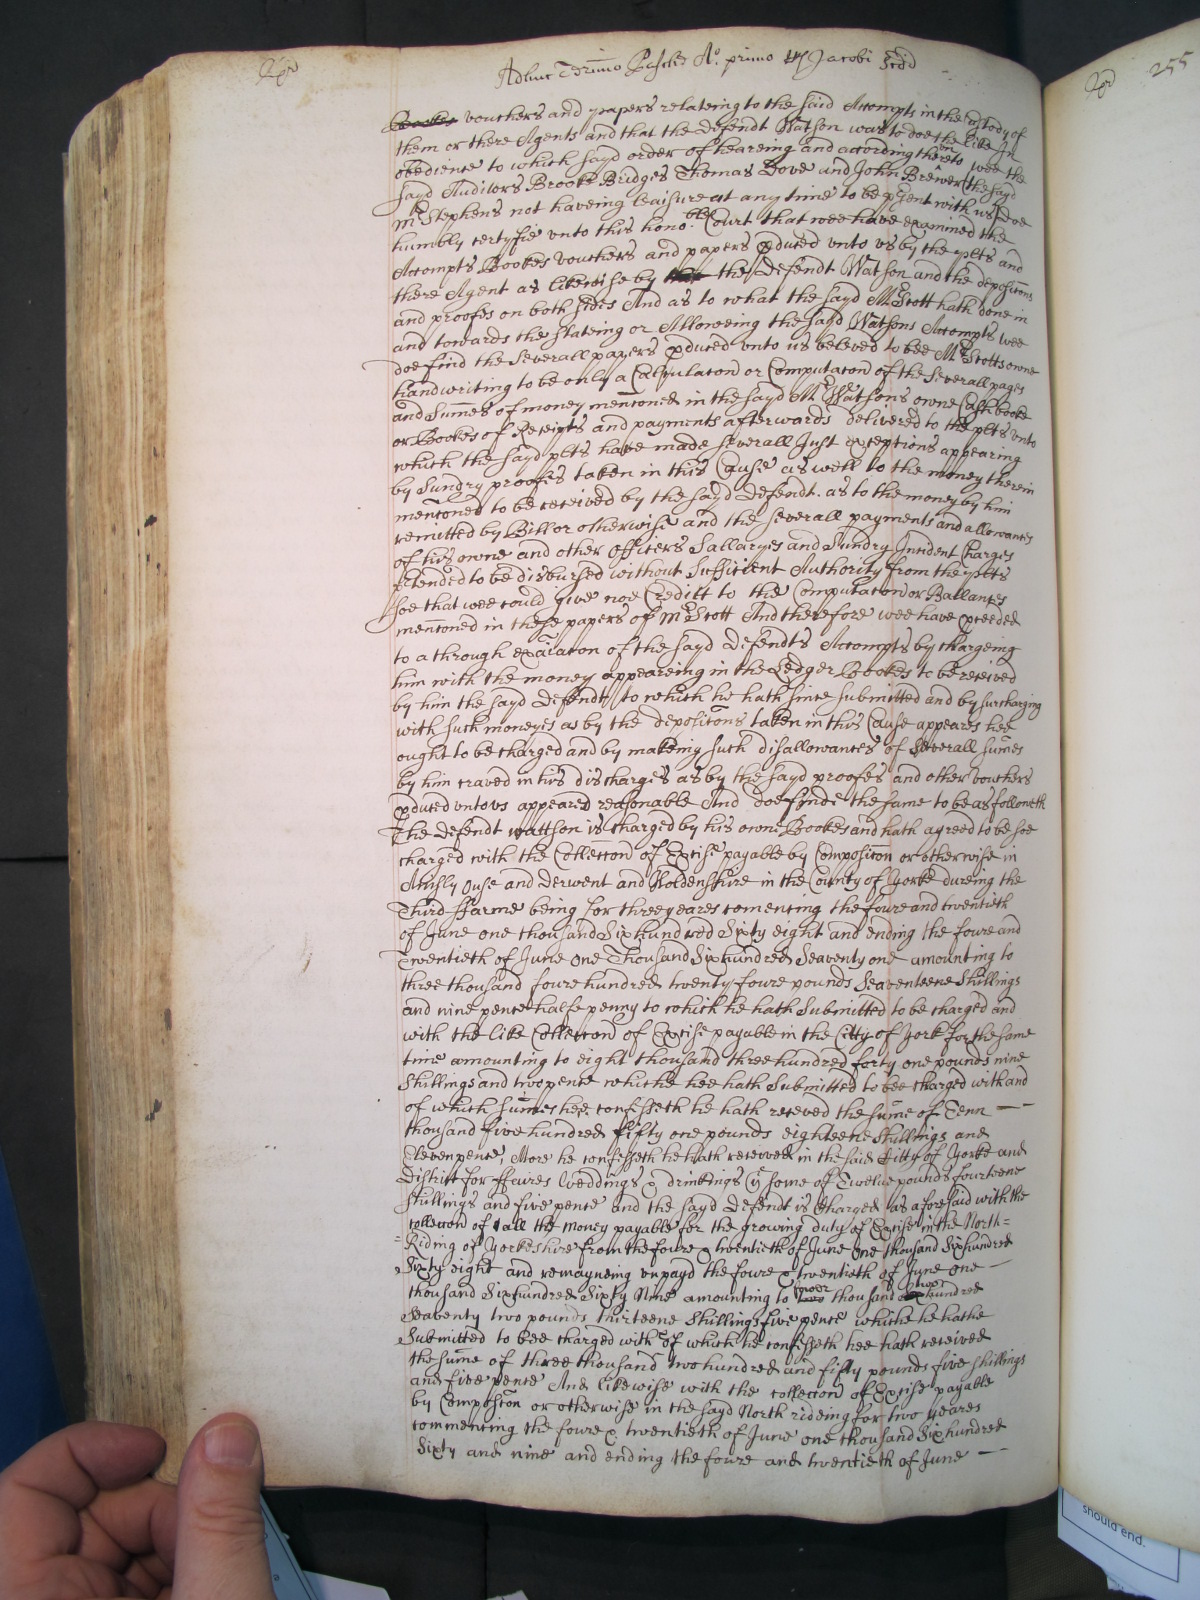 Adhuc Termino Pasche Ao. primo Jacobi Scdi
255
vouchers and papers relateing to the said Accompts in the Custody of
them or there Agents and that the defendt Watson was to doe the like In
obedience to which sayd order of heareing and according thereto wee the
sayd Auditors Brooke Bridges Thomas Dove and John Brewer (the sayd
Mr Stephens not haveing leaisure at any time to be psent with us) Doe
humbly certyfie vnto this honoble: Court that wee have examined the
Accompts Bookes vouchers and papers pduced vnto vs by the plts and
there Agent as likewise by the Defendt Watson and the depositons
and proofes on both sides And as to what the sayd Mr Scott hath done in
and towards the stateing or Alloweing the sayd Watsons Accompts wee
doe find the severall papers pduced vnto us beleved to bee Mr Scotts owne
handwriting to be only a Calculacon or Computacon of the severall pages
and Sumes of money menconed in the sayd Mr Watsons owne Cash booke
or Bookes of Receipts and payments afterwards delivered to the plts vnto
which the sayd plts have made severall Just exceptions appearing
by Sundry proofes taken in this Cause as well to the money therein
menconed to be received by the sayd defendt. as to the money by him
remitted by Bill or otherwise and the severall payments and allowances
of his owne and other officers Sallaryes and Sundry Incident Charges
ptended to be disbursed without Sufficient Authority from the plts
soe that wee could give noe Creditt to the Computacon or Ballances
menconed in these papers of Mr Scott And therefore wee have pceeded
to a through exaiacon of the sayd defendts Accompts by chargeing
him with the money appeareing in the Ledger Bookes to be received
by him the sayd defendt to which he hath since submitted and by surcharging
with such moneyes as by the depositons taken in this Cause appeares hee
ought to be charged and by makeing such disallowances of severall sumes
by him craved in his discharges as by the sayd proofes and other vouchers
pduced vnto vs appeared reasonable And doe finde the same to be as followeth
The defendt wattson is charged by his owne Bookes and hath agreed to be soe
charged with the Colleccon of Excise payable by Composicon or otherwise in
Ouse and Derwent and Holdenshire in the County of Yorke dureing the
Third ffarme being for three yeares comencing the foure and twentieth
of June one thousand Six hundred Sixty eight and ending the foure and
Twentieth of June One Thousand Six hundred Seaventy one amounting to
three thousand foure hundred twenty foure pounds Seaventeene Shillings
and nine pence halfe penny to which he hath Submitted to be charged and
with the like Colleccon of Excise payable in the Citty of York for the same
time amounting to eight thousand three hundred forty one pounds nine
Shillings and two pence whiche hee hath Submitted to bee charged with and
of which sumes hee confesseth he hath receved the sume of Tenn
thousand five hundred fifty one pounds eighteene Shillings and
Eleven pence, More he confesseth he hath received in the said Citty of Yorke and
District for ffaires Weddings & drinkings ye some of Twelve pounds fourteene
shillings and five pence and the sayd defendt is Charged as aforesaid with the
colleccon of all the money payable for the growing duty of Excise in the North=
=Riding of Yorkeshire from the foure & twentieth of June one thousand Six hundred
Sixty eight and remayneing vnpayd the foure & twentieth of June one
thousand Six hundred Sixty Nine amounting to fower thousand two hundred
Seaventy two pounds thirteene Shillings five pence whiche he hathe
Submitted to bee charged with of which he confesseth hee hath received
the sume of three thousand two hundred and fifty pounds five shillings
and five pence And likewise with the colleccon of Excise payable
by Composicon or otherwise in the sayd North rideing for two yeares
commencing the foure & twentieth of June one thousand Six hundred
Sixty and nine and ending the foure and twentieth of June
should end.